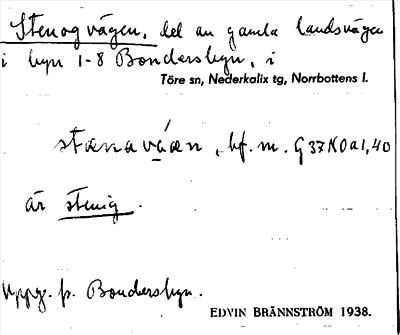 Stenogvägen, del av gamla landsvägen
i byn 1-8 Bondersbyn, i
Töre sn, Nederkalix tg, Norrbottens l.
stænaváæn, bf. m. G 37 N 0 a 1, 40
är stenig.
Uppg. fr. Bondersbyn.
EDVIN BRÄNNSTRÖM 1938.